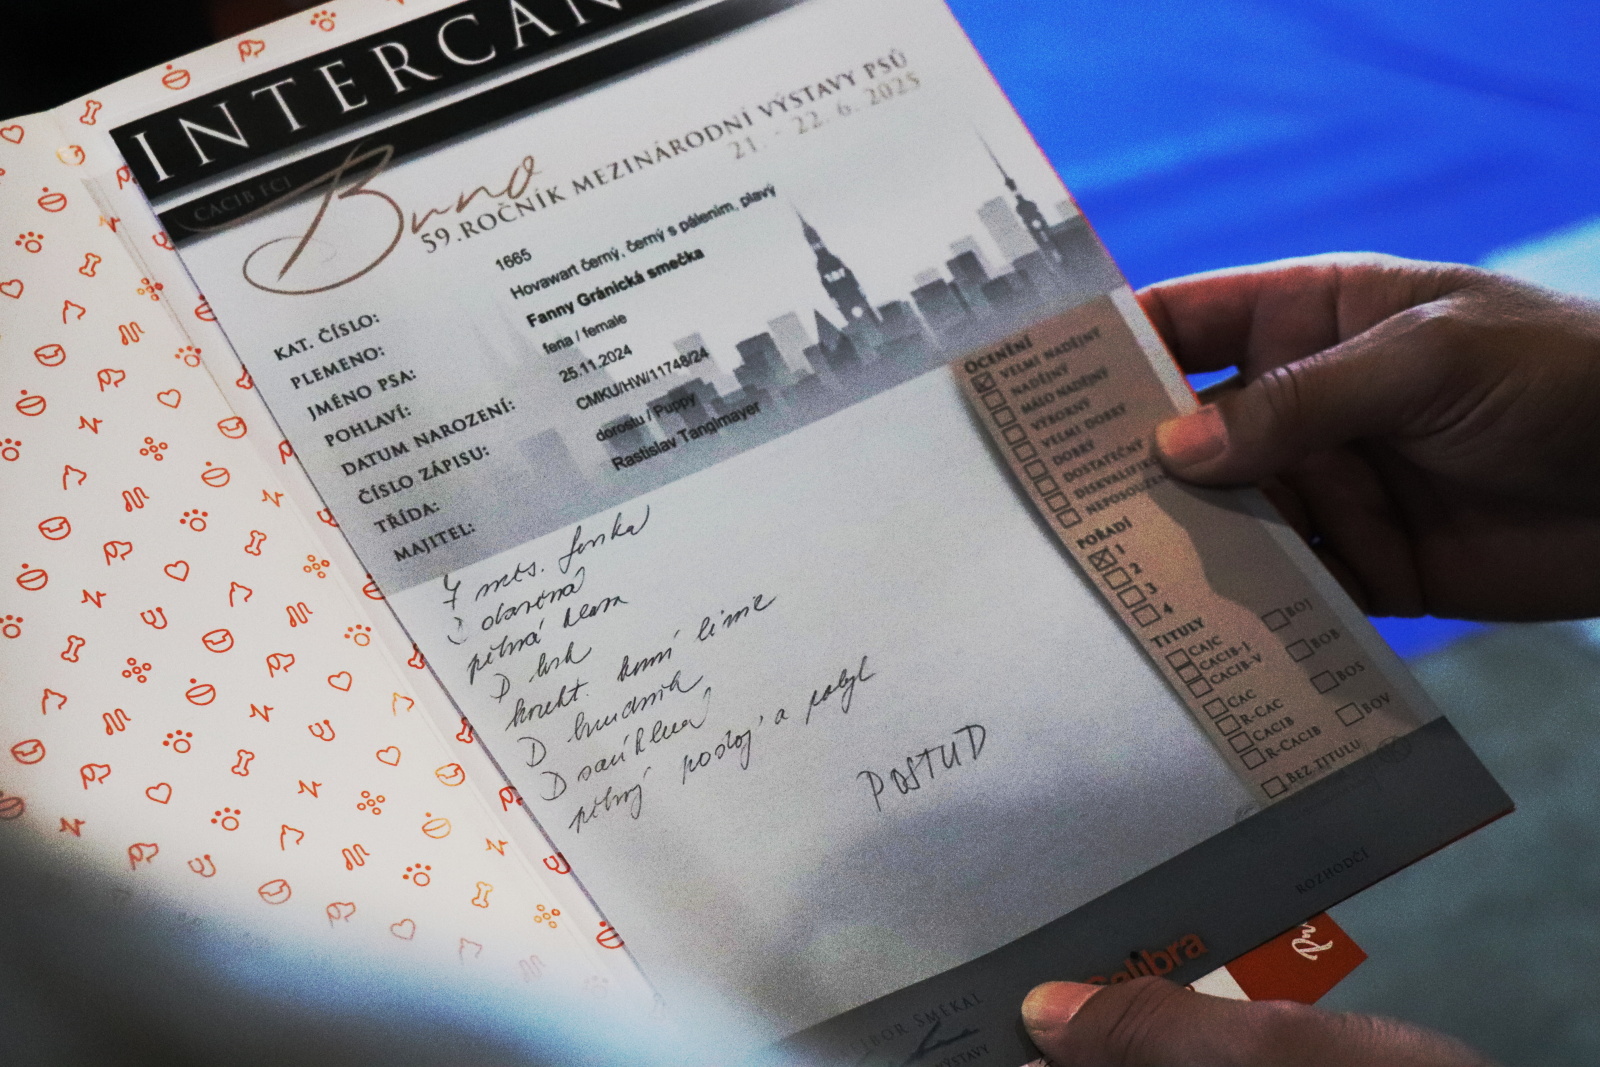 INTERCAN
CACIB FCI
Brno
59.ROČNÍK MEZINÁRODNÍ VÝSTAVY PSŮ
21. - 22. 6. 2025
KAT. ČÍSLO: 1665
PLEMENO: Hovawart černý, černý s pálením, plavý
JMÉNO PSA: Fanny Gránická smečka
POHLAVÍ: fena / female
DATUM NAROZENÍ: 25.11.2024
ČÍSLO ZÁPISU: CMKU/HW/11748/24
TŘÍDA: dorostu / Puppy
MAJITEL: Rastislav Tanglmayer
7 měs. fenka
pěkná hlava
D krk
korekt. horní linie
D hrudník
pěkný postoj a pohyb
POSTUP
OCENĚNÍ
VELMI NADĚJNÝ
NADĚJNÝ
MÁLO NADĚJNÝ
VÝBORNÝ
VELMI DOBRÝ
DOBRÝ
DOSTATEČNÝ
DISKVALIFIK
NEPOSOUZEN
POŘADÍ
1
2
3
4
TITULY
CAJC
CACIB-J
CACIB-V
CAC
R-CAC
CACIB
R-CACIB
BEZ TITULU
BOJ
BOB
BOS
BOV
ROZHODČÍ
Calibra
LIBOR SMÉKAL
VÝSTAVY